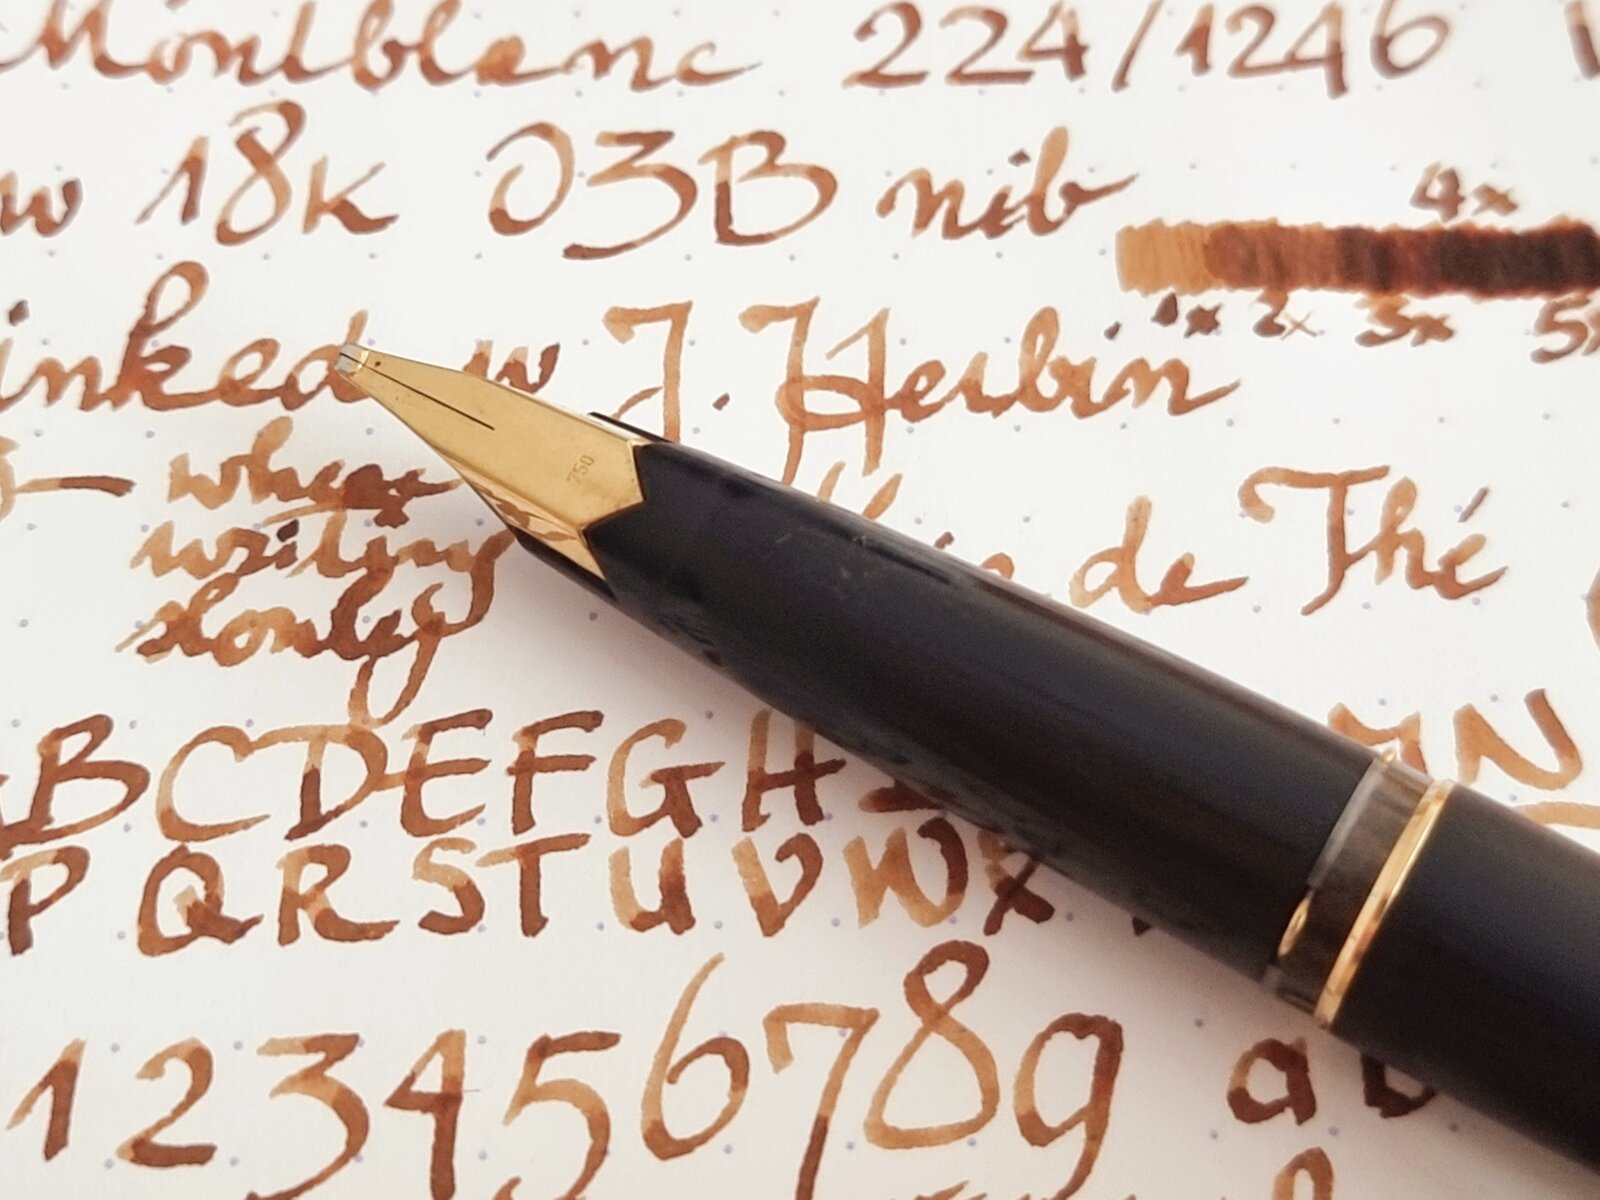 Montblanc 224/1246
w 18K O3B nib
4x
1x 2x 3x 5x
inked w J. Herbin
when de Thé
writing
750
B C D E F G H N
P Q R S T U V W X
1 2 3 4 5 6 7 8 9 a b